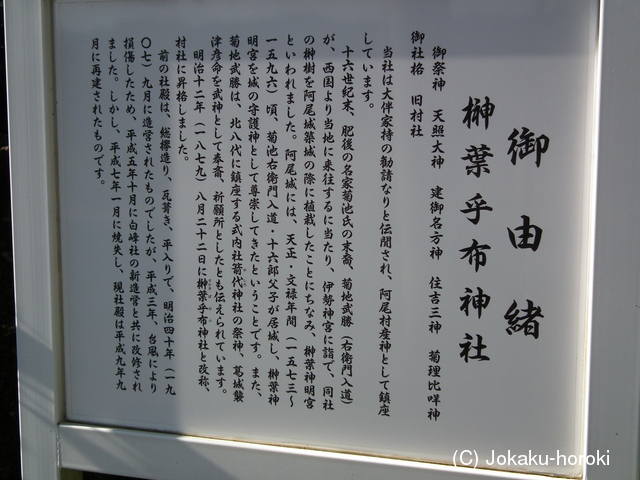 御由緒
榊葉乎布神社
御祭神 天照大神 建御名方神 住吉三神 菊理比咩神
御社格 旧村社
当社は大伴家持の勧請なりと伝聞され、阿尾村産神として鎮座
しています。
十六世紀末、肥後の名家菊池氏の末裔、菊地武勝(右衛門入道)
が、西国より当地に来往するに当たり、伊勢神宮に詣で、同社
の榊樹を阿尾城築城の際に植栽したことにちなみ、榊葉神明宮
といわれました。阿尾城には、天正・文禄年間(一五七三〜
一五九六)頃、菊池右衛門入道・十六郎父子が居城し、榊葉神
明宮を城の守護神として尊崇してきたということです。また、
菊地武勝は、北八代に鎮座する式内社箭代神社の祭神、葛城襲
津彦命を武神として奉斎、祈願所としたとも伝えられています。
明治十二年(一八七九)八月二十二日に榊葉乎布神社と改称、
村社に昇格しました。
前の社殿は、総欅造り、瓦葺き、平入りで、明治四十年(一九
〇七)九月に造営されたものでしたが、平成三年、台風により
損傷したため、平成五年十月に白峰社の新造営と共に改修され
ました。しかし、平成七年一月に焼失し、現社殿は平成九年九
月に再建されたものです。
(C) Jokaku-horoki